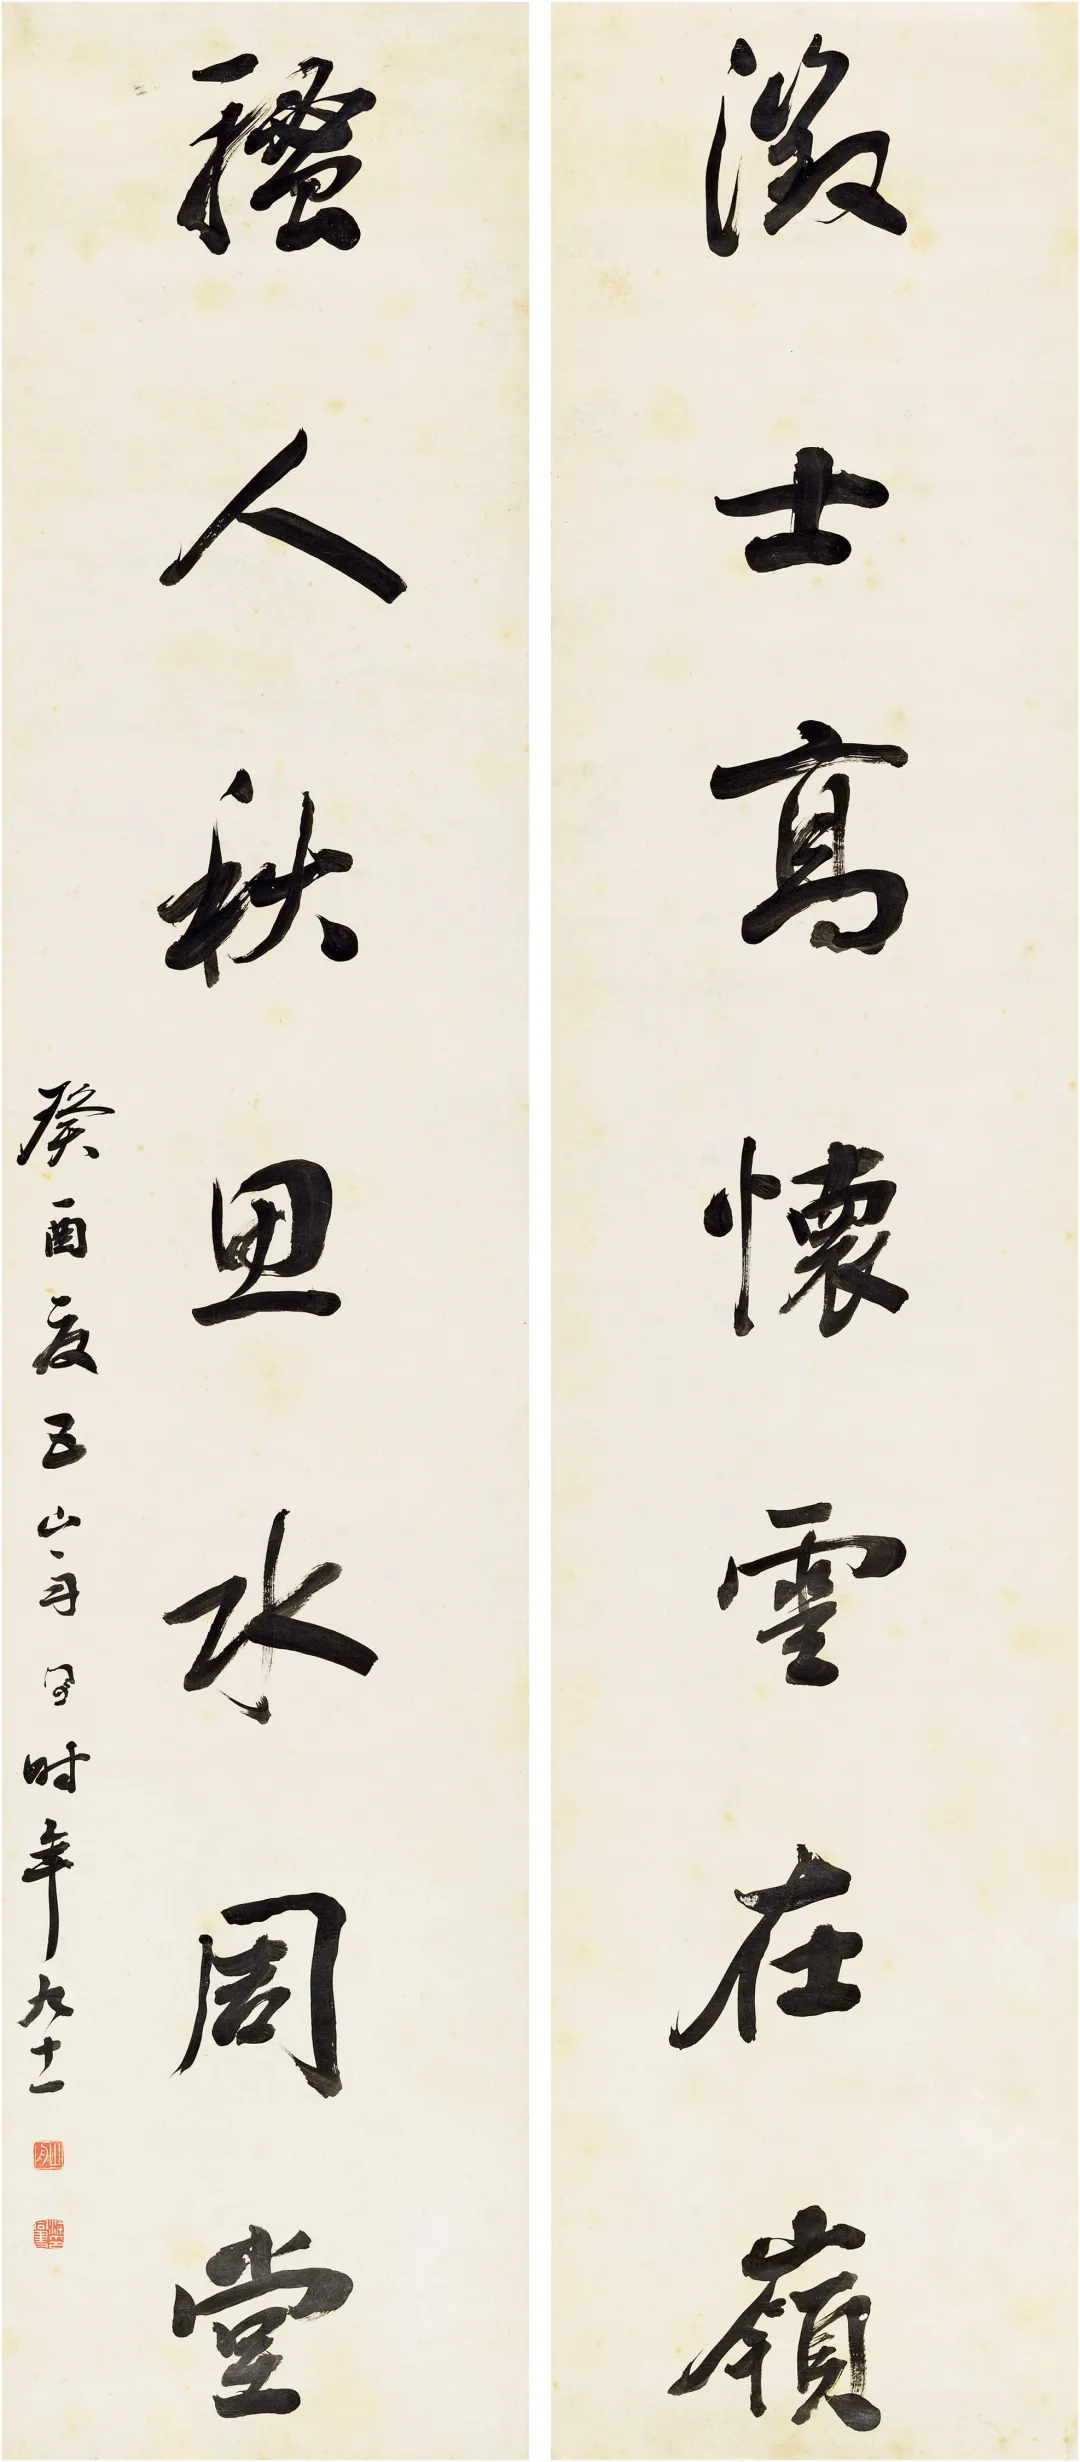 徵士高懷雲在嶺
騷人秋思水周堂
癸酉夏五山舟同書時年九十一
山舟